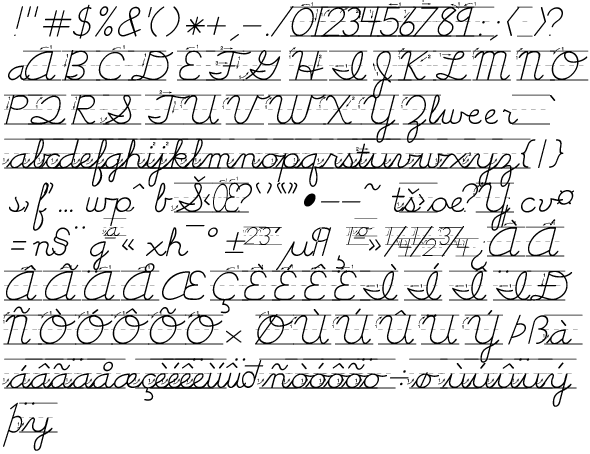 !"#$%&'()*+,-./0123456789:;< >?
aABCDEFGHIJKLMNO
PQRSTUVWXYZlweer_`
abcdefghijklmnopqrstuvwxyz{|}
f„…wpˆ b Š‹Œ? ‘’“”•–—˜ tš›oe?Ÿ cv¤
=n§¨gª«xh¯°±²³´µ¶ ¸¹º»¼½¾¿ÀÁ
ÂÃÄÅÆÇÈÉÊËÌÍÎÏÐ
ÑÒÓÔÕÖ×ØÙÚÛÜÝÞßà
áâãäåæçèéêëìíîïðñòóôõö÷øùúûüý
þÿ